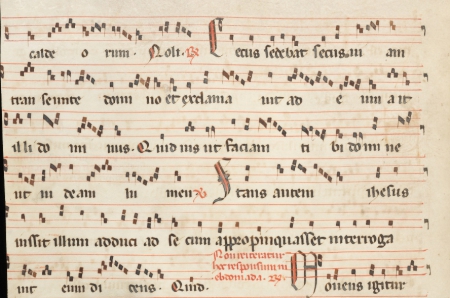 calde o rum. Noli. R. Cecus sedebat secus ui am
tran seunte domi no et exclama uit ad e um a it
il li do mi nus. Quid uis ut faciam ti bi do mi ne
ut ui de am lu men V. Stans autem ihesus
iussit illum adduci ad se cum appropinquasset interroga
uit eum di cens. Quid. Non reiteratur hoc responsorium Mouens igitur